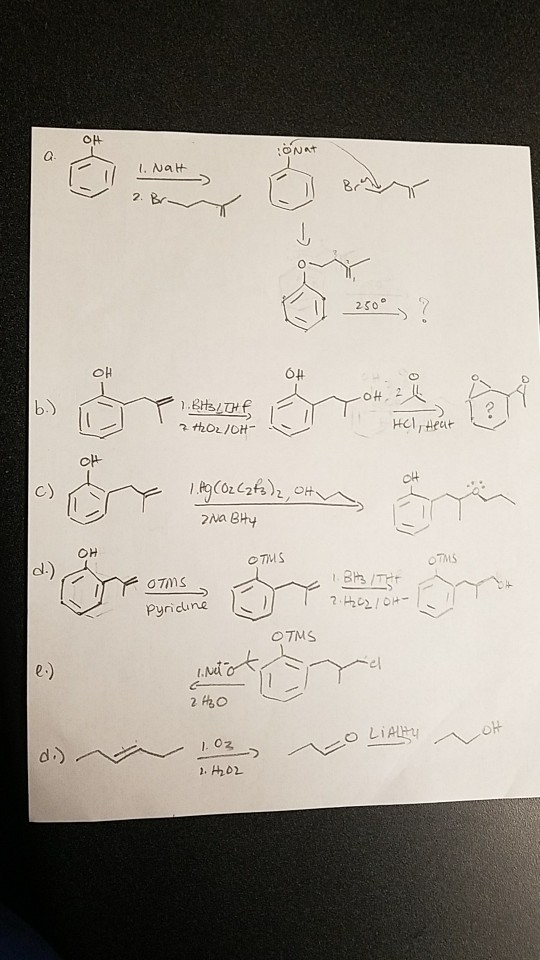 a.
OH
1. NaH
2. Br
:ÖNa+
Br
O
250° ?
b.)
OH
1. BH3/THF
2. H2O2/OH-
OH
OH
2
O
HCl, Heat
O
O
?
c)
OH
1. Hg(O2C2F3)2, OH
2 NaBH4
OH
O
d.)
OH
OTMS
pyridine
OTMS
1. BH3/THF
2. H2O2/OH-
OTMS
OH
e.)
1. Na+ -O
2 H3O
OTMS
Cl
d.)
1. O3
2. H2O2
O
LiAlH4
OH